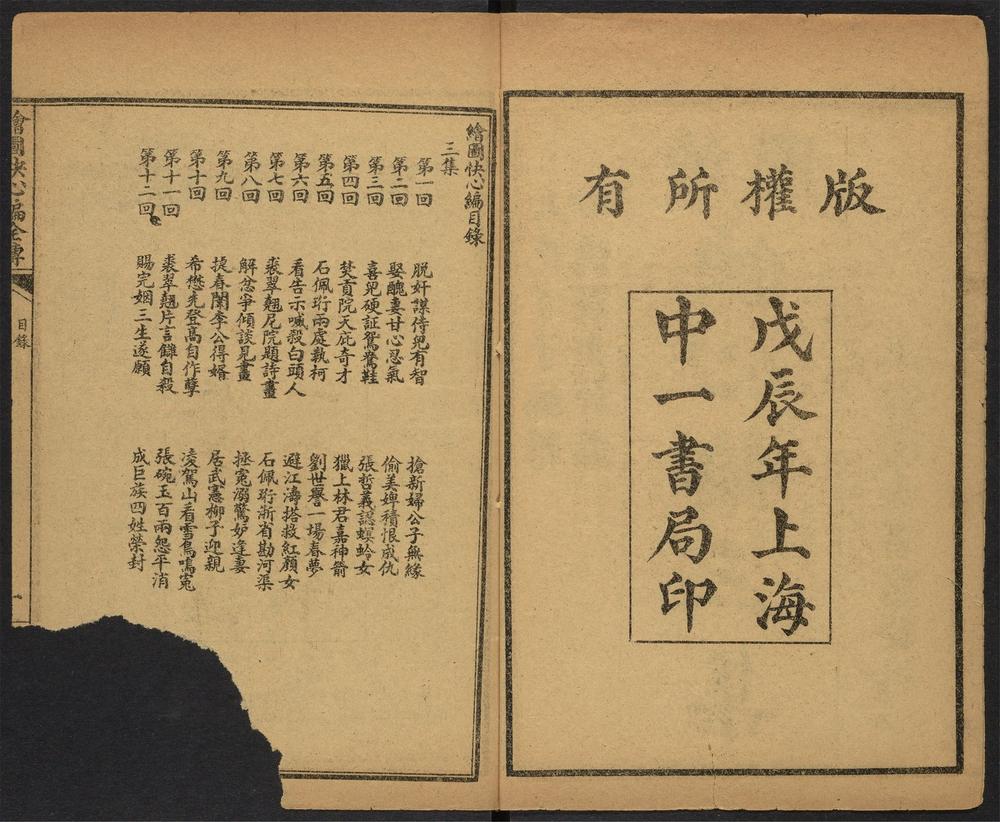 版權所有
戊辰年上海
中一書局印
繪圖快心編目錄
三集
第一回 脫奸謀侍兒有智 搶新婦公子無緣
第二回 娶醜妻甘心忍氣 偷美婢積恨成仇
第三回 喜兒硬証鴛鴦鞋 張哲義認螟蛉女
第四回 焚貢院天庇奇才 獵上林君嘉神箭
第五回 石佩珩兩處執柯 劉世譽一場春夢
第六回 看告示喊殺白頭人 避江濤搭救紅顏女
第七回 裘翠翹尼院題詩畫 石佩珩浙省勘河渠
第八回 解忿爭傾談見畫 拯冤溺驚妒逢妻
第九回 捉春闈李公得婿 居武憲柳子迎親
第十回 希懋先登高自作孽 凌駕山看雪鳥鳴冤
第十一回 裘翠翹片言讎自殺 張碗玉百兩怨平消
第十二回 賜完姻三生遂願 成巨族四姓榮封
繪圖快心編全傳
目錄
一